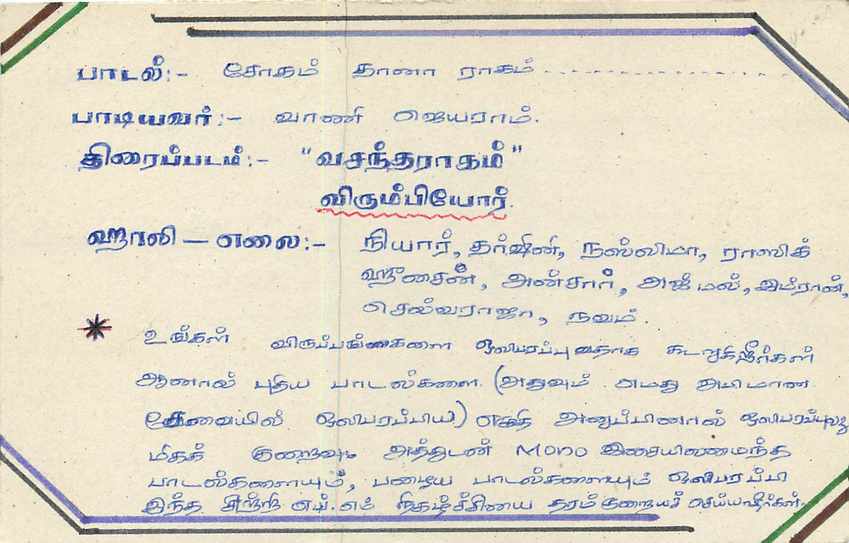 பாடல்:- சோகம் தானா ராகம் ..........................
பாடியவர்:- வாணி ஜெயராம்.
திரைப்படம்:- "வசந்தராகம்"
விரும்பியோர்.
ஹாலி - எலை:- நியார், தர்ஷினி, நஸ்லிமா, ராஸிக்
ஹுசைன், அன்சார், அஜ்மல், இம்ரான்,
செல்வராஜா, நவம்.
* உங்கள் விருப்பங்களை ஒலிபரப்புவதாக கூறுகிறீர்கள்
ஆனால் புதிய பாடல்களை (அதுவும் எமது அபிமான
சேவையில் ஒலிபரப்பிய) எழுதி அனுப்பினால் ஒலிபரப்புவது
மிகக் குறைவு அத்துடன் Mono இசையிலமைந்த
பாடல்களையும், பழைய பாடல்களையும் ஒலிபரப்பி
இந்த எப்.எம் நிகழ்ச்சியை தரம்குறையச் செய்யாதீர்கள்.